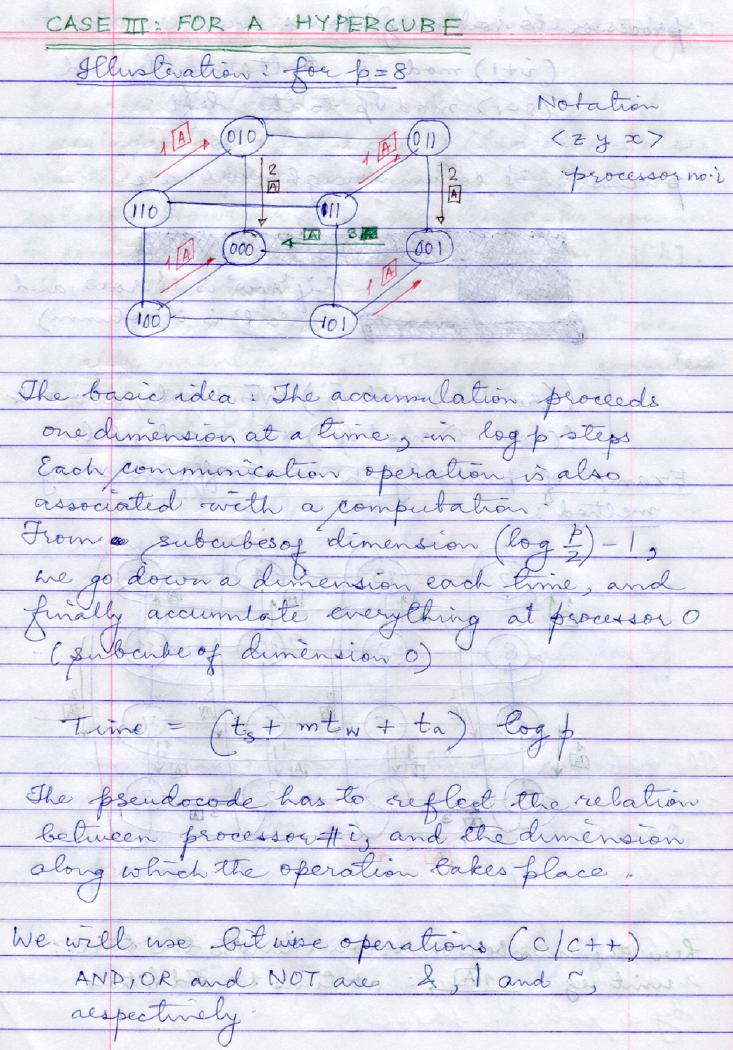 CASE III: FOR A HYPERCUBE
Illustration: for p=8
Notation
<z y x>
processor no. i
010
011
1 A
1 A
2
A
2
A
110
111
000
A 3 A
001
1 A
1 A
100
101
The basic idea: The accumulation proceeds
one dimension at a time, in log p steps
Each communication operation is also
associated with a computation.
From subcubes of dimension (log p/2) - 1,
we go down a dimension each time, and
finally accumlate everything at processor 0
(subcube of dimension 0)
Time = (ts + mtw + ta) log p
The pseudocode has to reflect the relation
between processor # i, and the dimension
along which the operation takes place.
We will use bitwise operations (C/C++)
AND, OR and NOT are &, | and ~,
respectively.